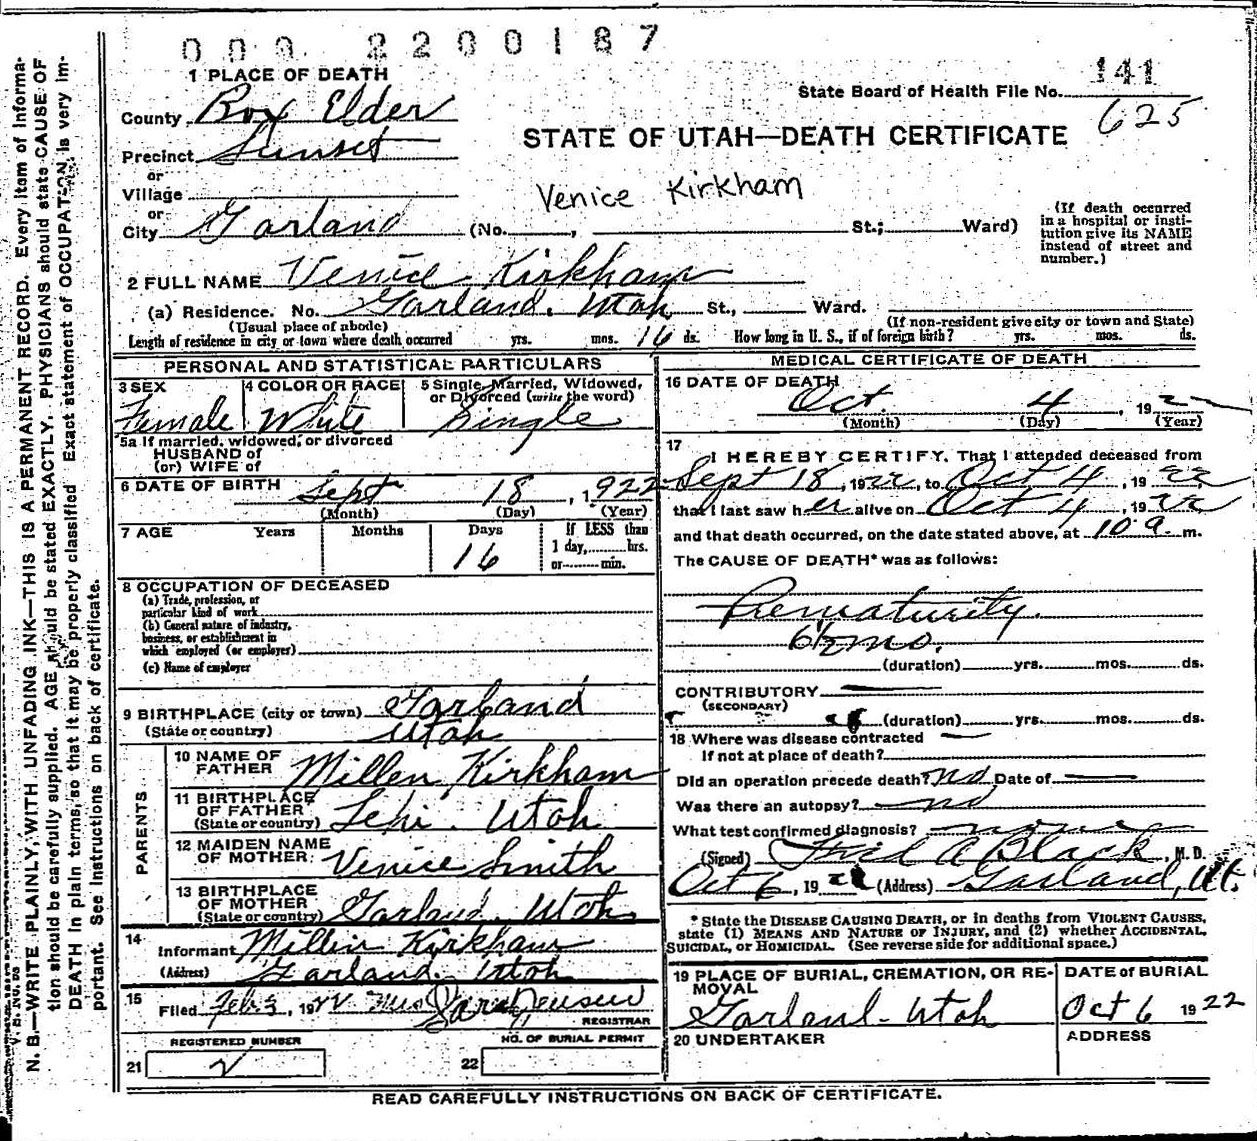 000 2200187
1 PLACE OF DEATH
141
State Board of Health File No.
625
County Box Elder
STATE OF UTAH—DEATH CERTIFICATE
Precinct Sunset
or
Village
Venice Kirkham
or
City Garland (No. , St.; Ward)
(If death occurred
in a hospital or insti-
tution give its NAME
instead of street and
number.)
2 FULL NAME Venice Kirkham
(a) Residence. No. Garland, Utah St., Ward.
(Usual place of abode)
(If non-resident give city or town and State)
Length of residence in city or town where death occurred yrs. mos. 16 ds. How long in U. S., if of foreign birth? yrs. mos. ds.
PERSONAL AND STATISTICAL PARTICULARS
3 SEX
Female
4 COLOR OR RACE
White
5 Single, Married, Widowed,
or Divorced (write the word)
Single
5a If married, widowed, or divorced
HUSBAND of
(or) WIFE of
6 DATE OF BIRTH Sept 18, 1922
(Month) (Day) (Year)
7 AGE Years Months Days
16
If LESS than
1 day, hrs.
or min.
8 OCCUPATION OF DECEASED
(a) Trade, profession, or
particular kind of work
(b) General nature of industry,
business, or establishment in
which employed (or employer)
(c) Name of employer
9 BIRTHPLACE (city or town) Garland
(State or country) Utah
PARENTS
10 NAME OF
FATHER Millen Kirkham
11 BIRTHPLACE
OF FATHER
(State or country) Lehi, Utah
12 MAIDEN NAME
OF MOTHER Venice Smith
13 BIRTHPLACE
OF MOTHER
(State or country) Garland, Utah
14
Informant Millen Kirkham
(Address) Garland, Utah
15
Filed Feb. 3, 1922 Mrs Sarah Jensen
REGISTRAR
REGISTERED NUMBER
21 2
NO. OF BURIAL PERMIT
22
MEDICAL CERTIFICATE OF DEATH
16 DATE OF DEATH
Oct. 4, 1922
(Month) (Day) (Year)
17
I HEREBY CERTIFY, That I attended deceased from
Sept 18, 1922, to Oct 4, 1922
that I last saw her alive on Oct 4, 1922
and that death occurred, on the date stated above, at 10 a. m.
The CAUSE OF DEATH* was as follows:
Prematurity
6½ mo.
(duration) yrs. mos. ds.
CONTRIBUTORY —
(SECONDARY)
(duration) yrs. mos. ds.
18 Where was disease contracted —
If not at place of death?
Did an operation precede death? no Date of —
Was there an autopsy? no
What test confirmed diagnosis? none
(Signed) Fred A Black, M. D.
Oct 6, 1922 (Address) Garland, Ut.
* State the DISEASE CAUSING DEATH, or in deaths from VIOLENT CAUSES,
state (1) MEANS AND NATURE OF INJURY, and (2) whether ACCIDENTAL,
SUICIDAL, or HOMICIDAL. (See reverse side for additional space.)
19 PLACE OF BURIAL, CREMATION, OR RE-
MOVAL
Garland - Utah
DATE of BURIAL
Oct 6 1922
20 UNDERTAKER
ADDRESS
READ CAREFULLY INSTRUCTIONS ON BACK OF CERTIFICATE.
N. B.—WRITE PLAINLY, WITH UNFADING INK—THIS IS A PERMANENT RECORD. Every item of informa-
tion should be carefully supplied. AGE should be stated EXACTLY. PHYSICIANS should state CAUSE OF
DEATH in plain terms, so that it may be properly classified. Exact statement of OCCUPATION is very im-
portant. See Instructions on back of certificate.